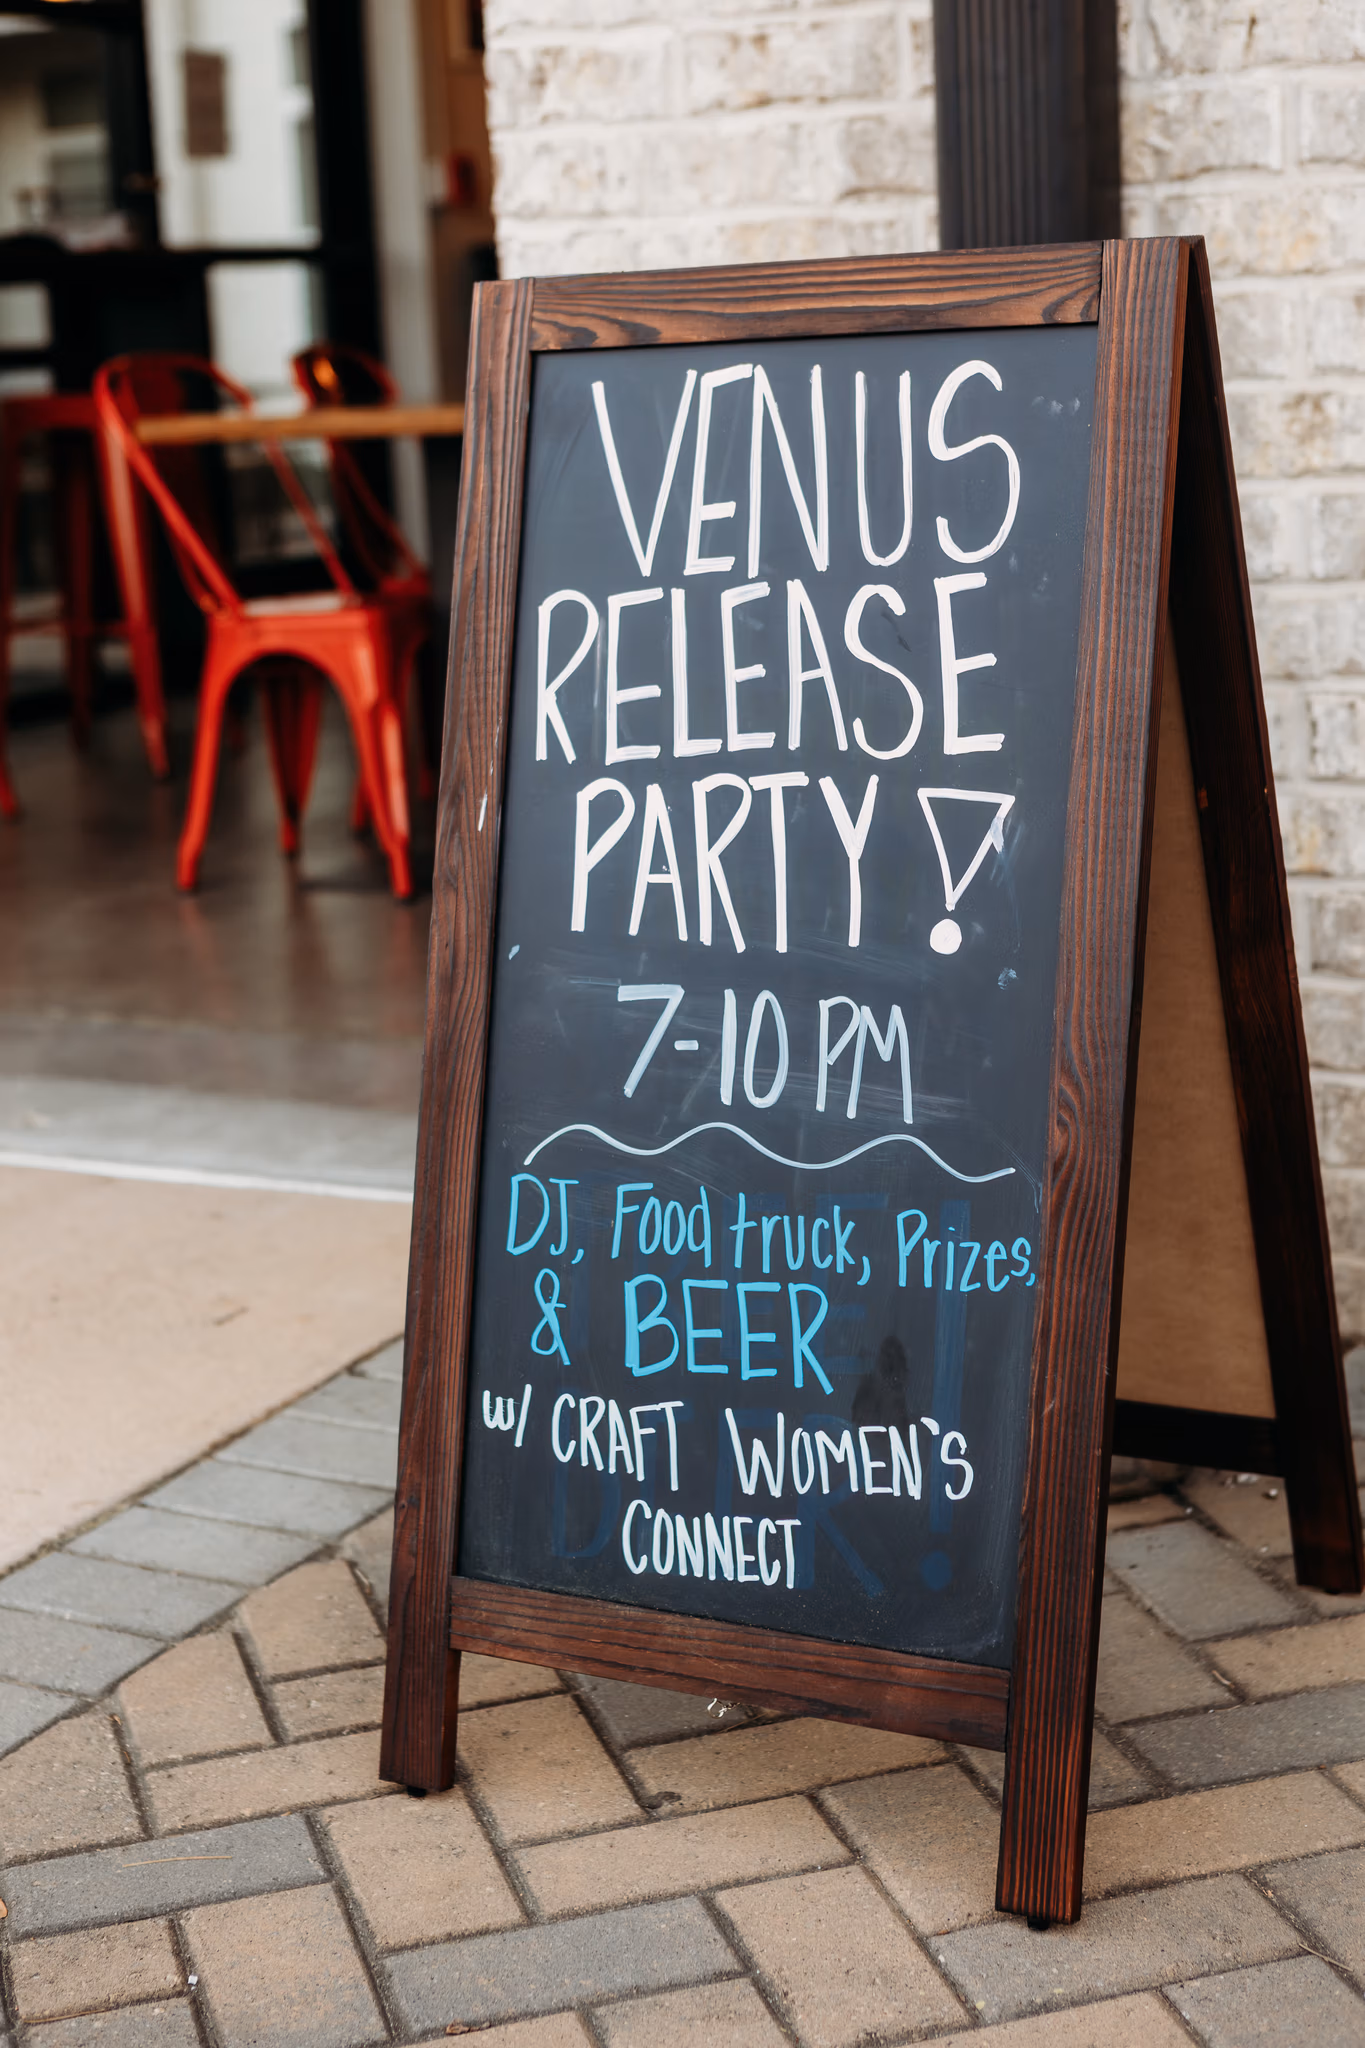 VENUS
RELEASE
PARTY!
7-10 PM
DJ, Food truck, Prizes,
& BEER
w/ CRAFT WOMEN'S
CONNECT